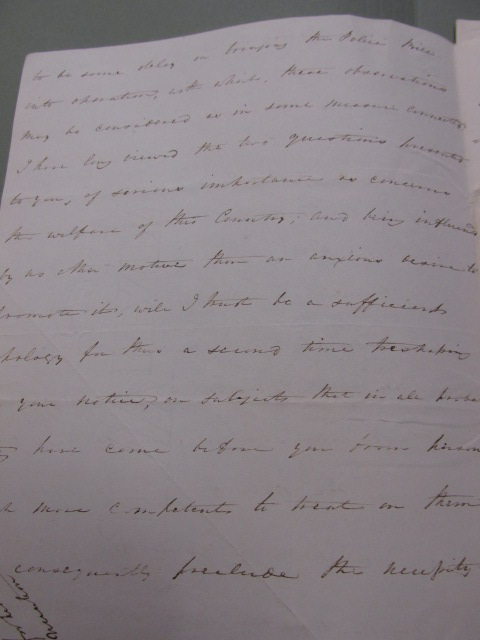 to be some delay in bringing the Police Bill
into operation, with which, these observations
may be considered as in some measure connected
I have long viewed the two questions
to you, of serious importance as concerns
the welfare of this Country; and being influenced
by no other motive than an anxious desire to
promote it, will I trust be a sufficient
pology for thus a second time trespassing
your notice, on subjects that in all proba
have come before you from person
more competent to treat on them
consequently preclude the necessity